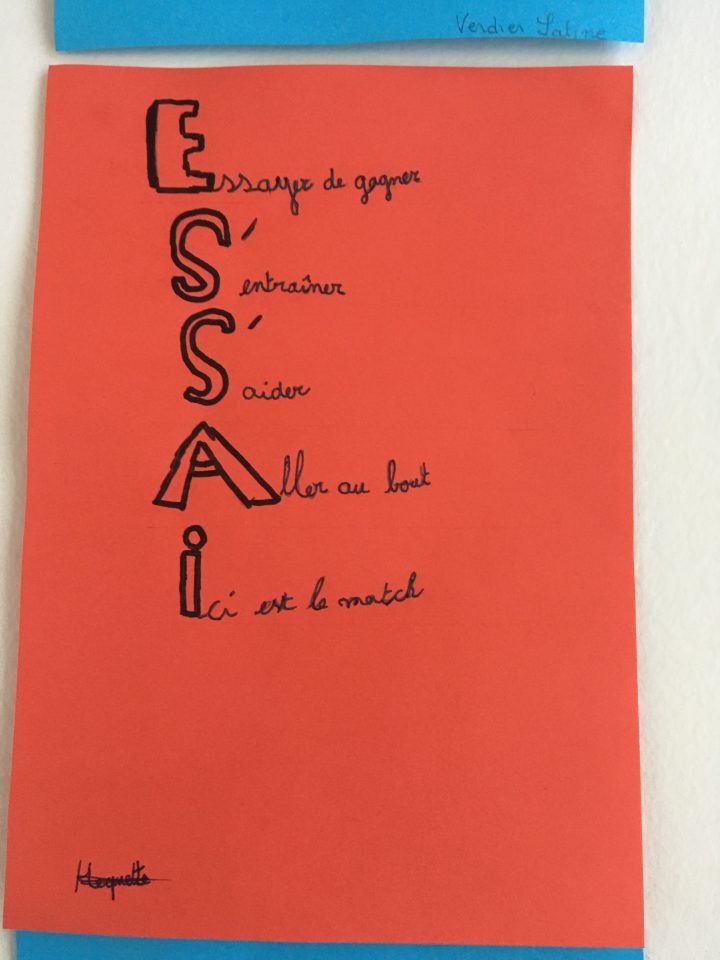 Verdier
Essayer de gagner
S'entraîner
S'aider
Aller au bout
ici est le match